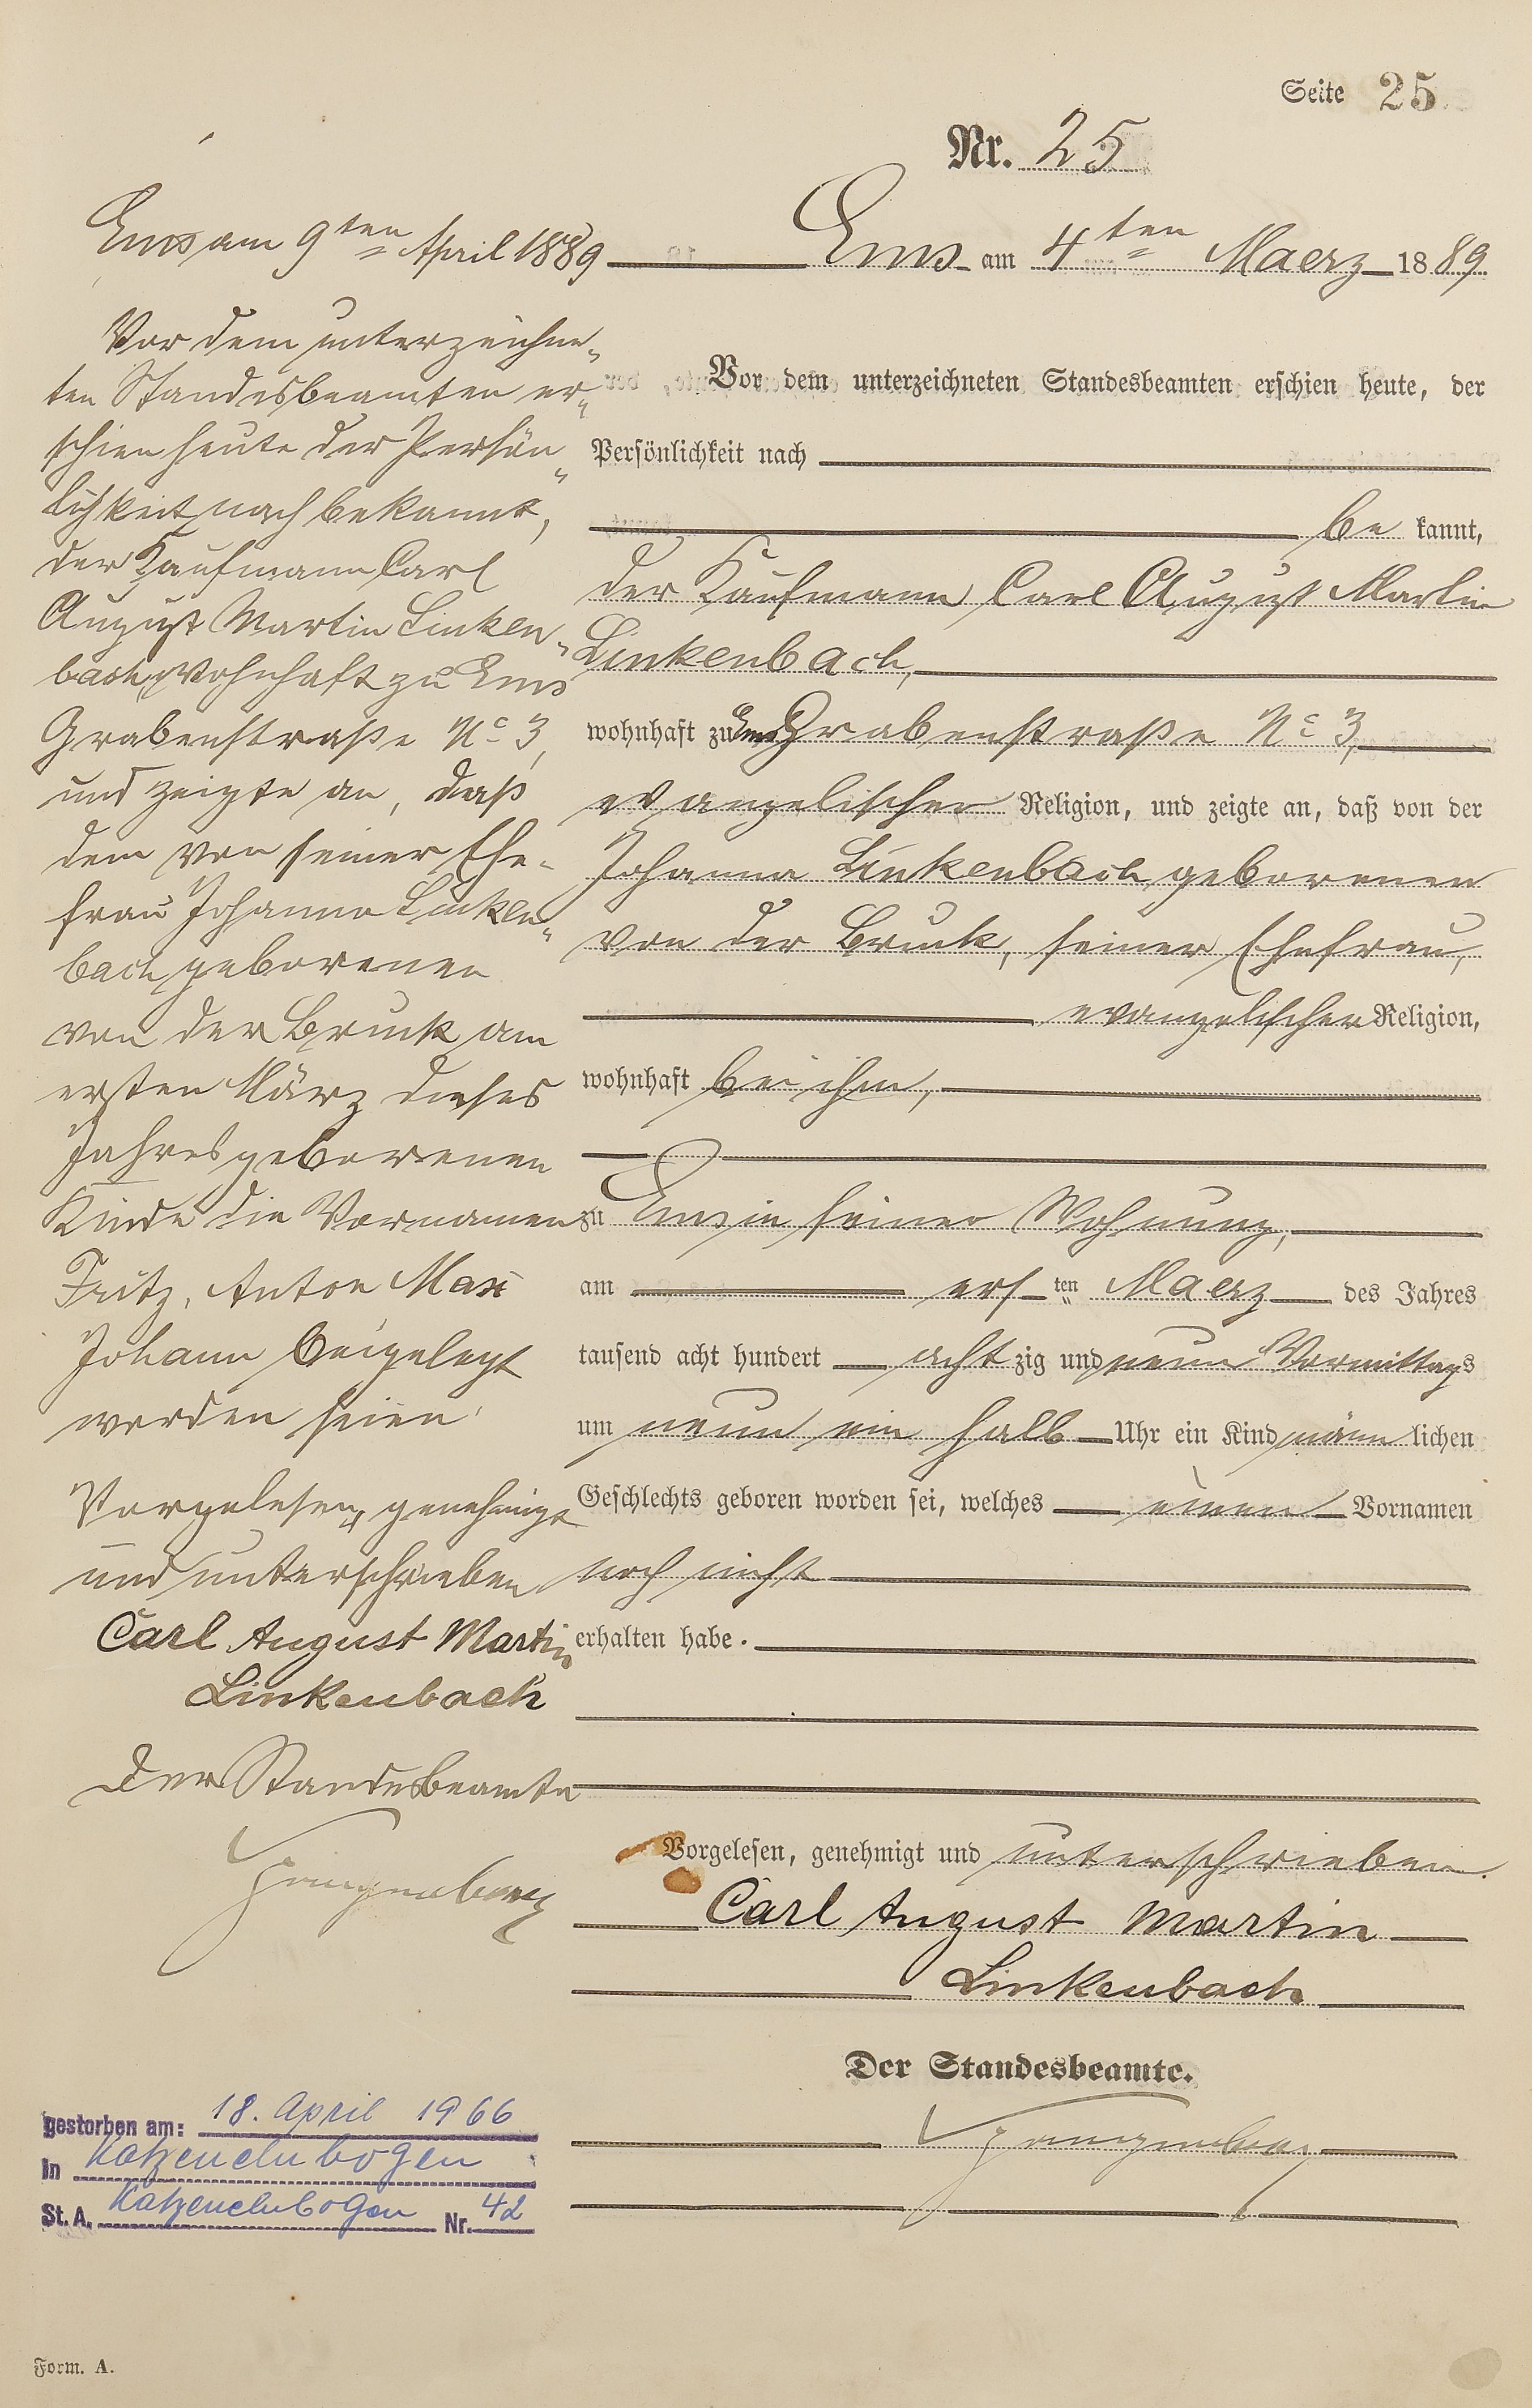 Seite 25.
Nr. 25
Ems am 4ten Maerz 1889
Vor dem unterzeichneten Standesbeamten erschien heute, der
Persönlichkeit nach
bekannt,
der Kaufmann Carl August Martin
Linkenbach,
wohnhaft zu Ems Grabenstraße No 3,
evangelischer Religion, und zeigte an, daß von der
Johanna Linkenbach geborenen
von der Bruck, seiner Ehefrau,
evangelischer Religion,
wohnhaft bei ihm,
zu Ems in seiner Wohnung,
am ersten Maerz des Jahres
tausend acht hundert achtzig und neun Vormittags
um neun ein halb Uhr ein Kind männlichen
Geschlechts geboren worden sei, welches einen Vornamen
noch nicht
erhalten habe.
Vorgelesen, genehmigt und unterschrieben.
Carl August Martin
Linkenbach
Der Standesbeamte.
Ems am 9ten April 1889
Vor dem unterzeichne-
ten Standesbeamten er-
schien heute der Persön-
lichkeit nach bekannt,
der Kaufmann Carl
August Martin Linken-
bach, wohnhaft zu Ems
Grabenstraße No 3,
und zeigte an, daß
dem von seiner Ehe-
frau Johanna Linken-
bach geborenen
von der Bruck am
ersten März dieses
Jahres geborenen
Kinde die Vornamen
Fritz, Anton Max
Johann beigelegt
worden seien.
Vorgelesen, genehmigt
und unterschrieben
Carl August Martin
Linkenbach
Der Standesbeamte
gestorben am: 18. April 1966
In Katzenelnbogen
St. A. Katzenelnbogen Nr. 42
Form. A.